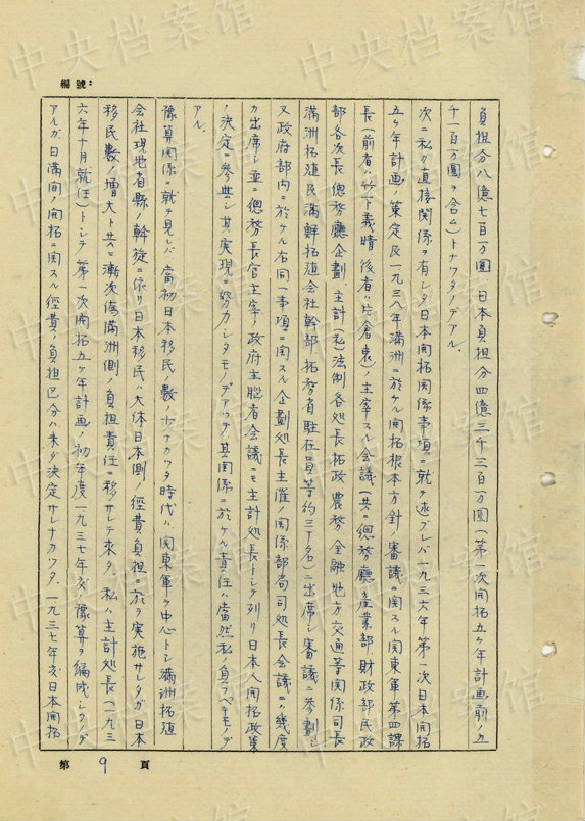 中央档案馆
編號：
負担分八億七百万圓　日本負担分四億三千三百万圓（第一次開拓五ケ年計画前ノ九
千一百万圓ヲ含ム）トナツタノデアル．
次ニ私ガ直接関係ヲ有シタ日本開拓関係事項ニ就キ述ブレバ一九三六年第一次日本開拓
五ケ年計画ノ策定及一九三八年満洲ニ於ケル開拓根本方針ノ審議ニ関スル関東軍第四課
長（前者ハ竹下義晴　後者ハ片倉衷）ノ主宰スル会議（共ニ總務廳　産業部　財政部　民政
部各次長　總務廳企劃　主計（私）法制各処長　拓政　農務　金融　地方　交通等関係司長
満洲拓殖及満鮮拓殖会社幹部　拓務省駐在員等約三十名）ニ出席シ審議ニ参劃シ
又政府部内ニ於ケル右同一事項ニ関スル企劃処長主催ノ関係部局司処長会議ニハ幾度
カ出席シ並ニ總務長官主宰ノ政府主脳者会議ニモ主計処長トシテ列リ日本人開拓政策
ノ決定ニ参與シ其ノ実現ニ努力シタモノデアツテ其関係ニ於ケル責任ハ當然私ノ負フベキモノデ
アル．
豫算関係ニ就テ見レバ　當初日本移民數ノ少ナカツタ時代ハ　関東軍ヲ中心トシ満洲拓殖
会社現地省縣ノ斡旋ニ依リ日本移民ハ大体日本側ノ經費負担ニ於テ実施サレタガ　日本
移民數ノ増大ト共ニ漸次偽満洲側ノ負担責任ニ移サレテ来タ．私ハ主計処長（一九三
六年十月就任）トシテ第一次開拓五ケ年計画ノ初年度一九三七年度ノ豫算ヲ編成シタノデ
アルガ　日満間ノ開拓ニ関スル經費ノ負担区分ハ未ダ決定サレナカツタ．一九三七年度日本開拓
第9頁